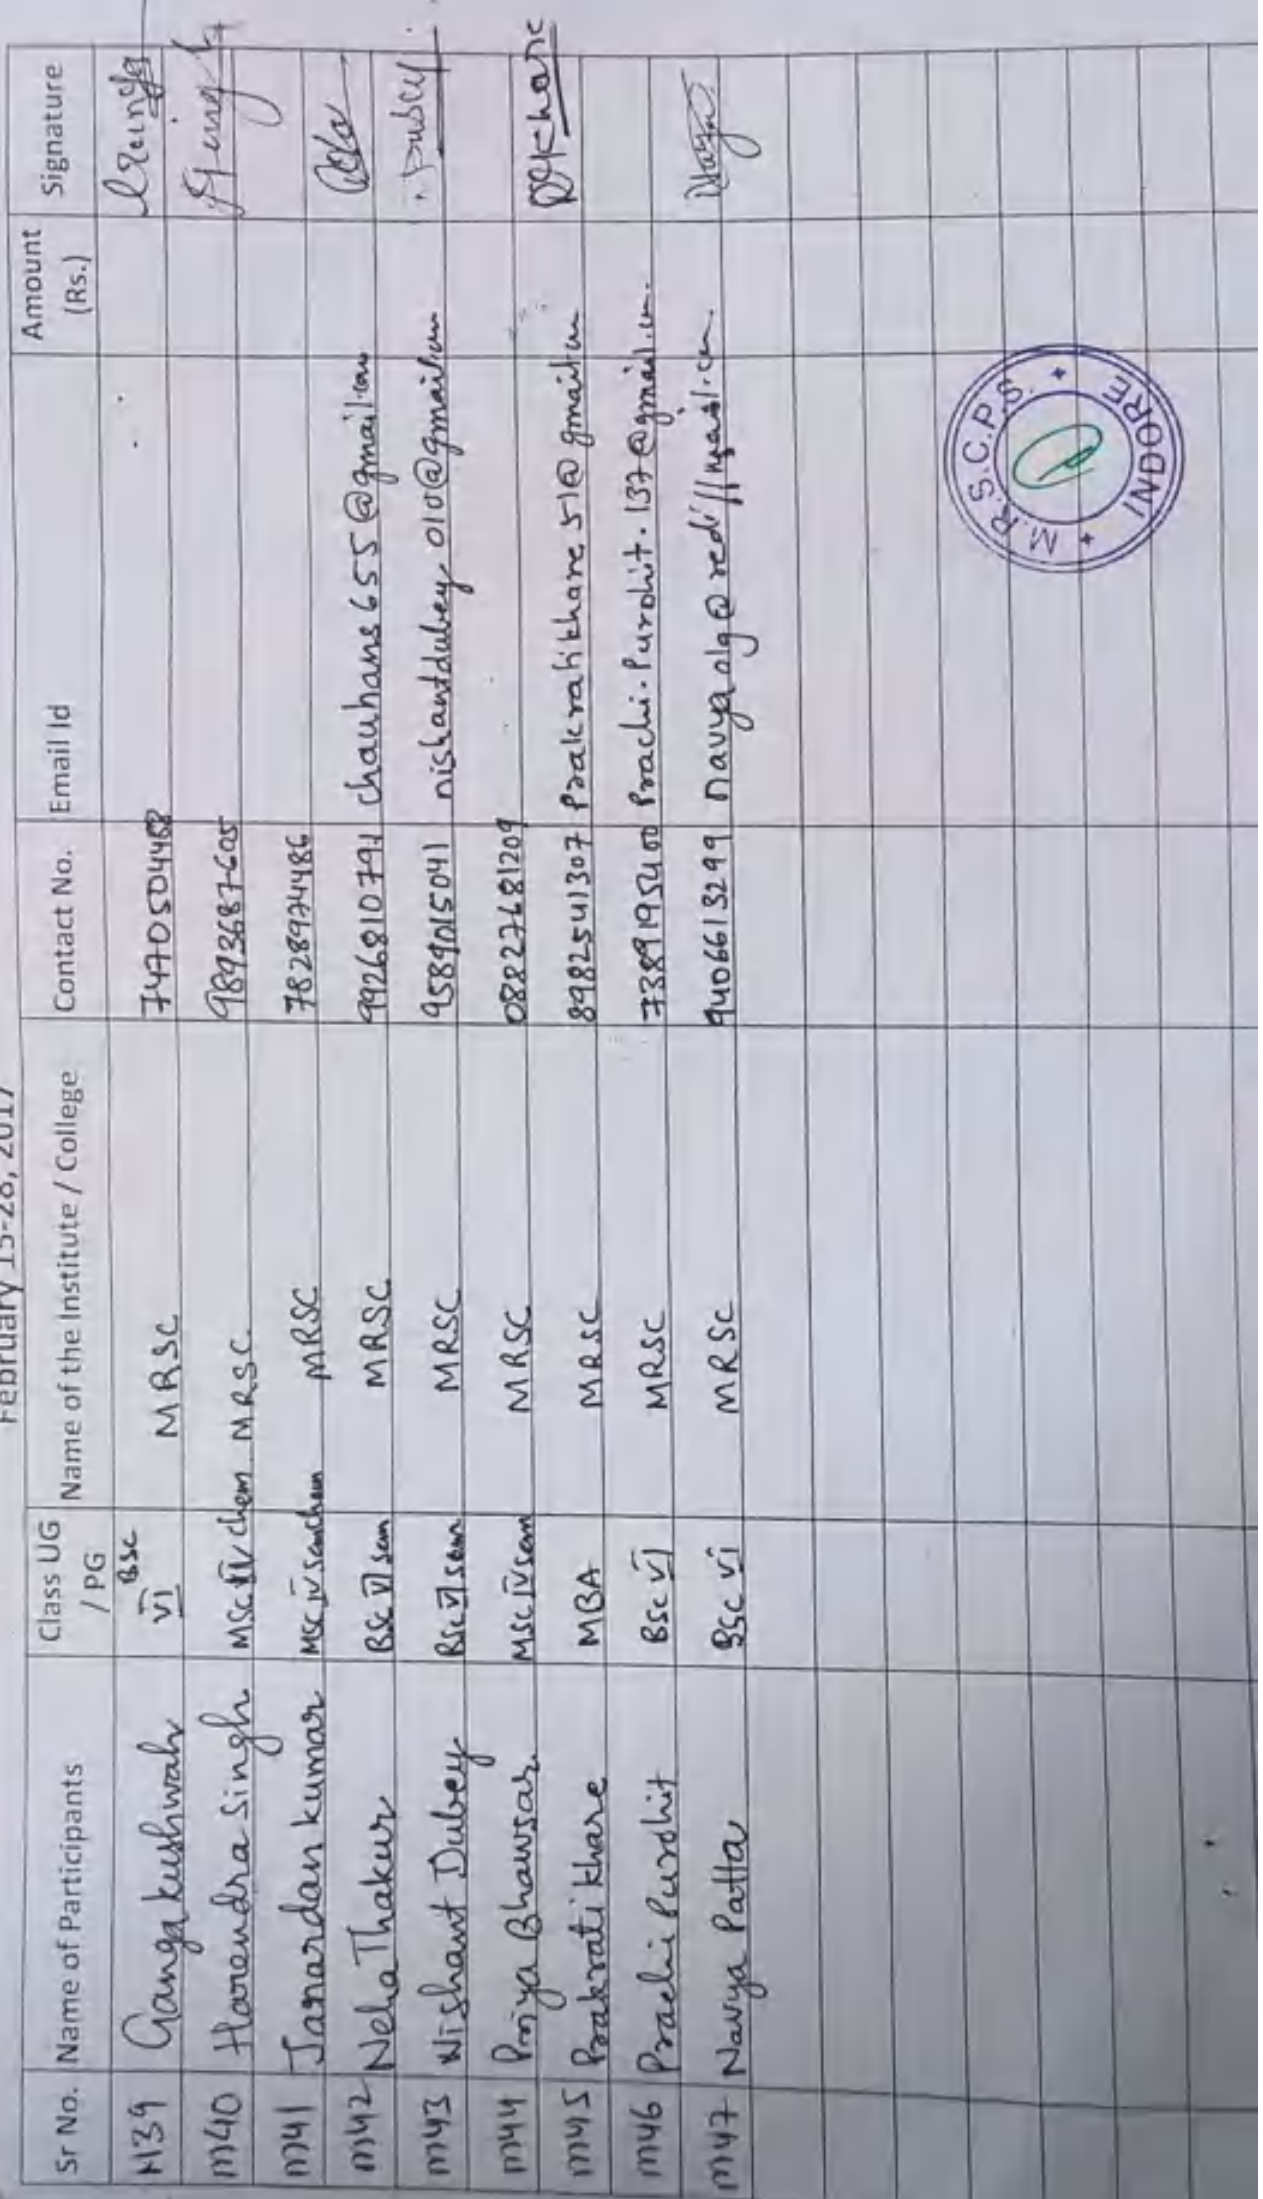 February 15-28, 2017
Sr No. Name of Participants Class UG / PG Name of the Institute / College Contact No. Email Id Amount (Rs.) Signature
M39 Ganga kushwah BSc VI MRSC 7470504458
M40 Harendra Singh MSc IV Chem MRSC 9893687605
M41 Janardan kumar MSc IV sem Chem MRSC 7828974486
M42 Neha Thakur BSc VI sem MRSC 9926810791 chauhans655@gmail.com
M43 Nishant Dubey BSc VI sem MRSC 9589015041 nishantdubey010@gmail.com Dubey
M44 Priya Bhawsar MSc IV sem MRSC 08827681209
M45 Prakrati khare MBA MRSC 8982541307 Prakratikhare51@gmail.com PKhare
M46 Prachi Purohit BSc VI MRSC 7389195400 Prachi.Purohit.137@gmail.com.
M47 Navya Patta BSc VI MRSC 9406613299 navyaolg@rediffmail.com. Navya
M.R.S.C.P.S.
INDORE